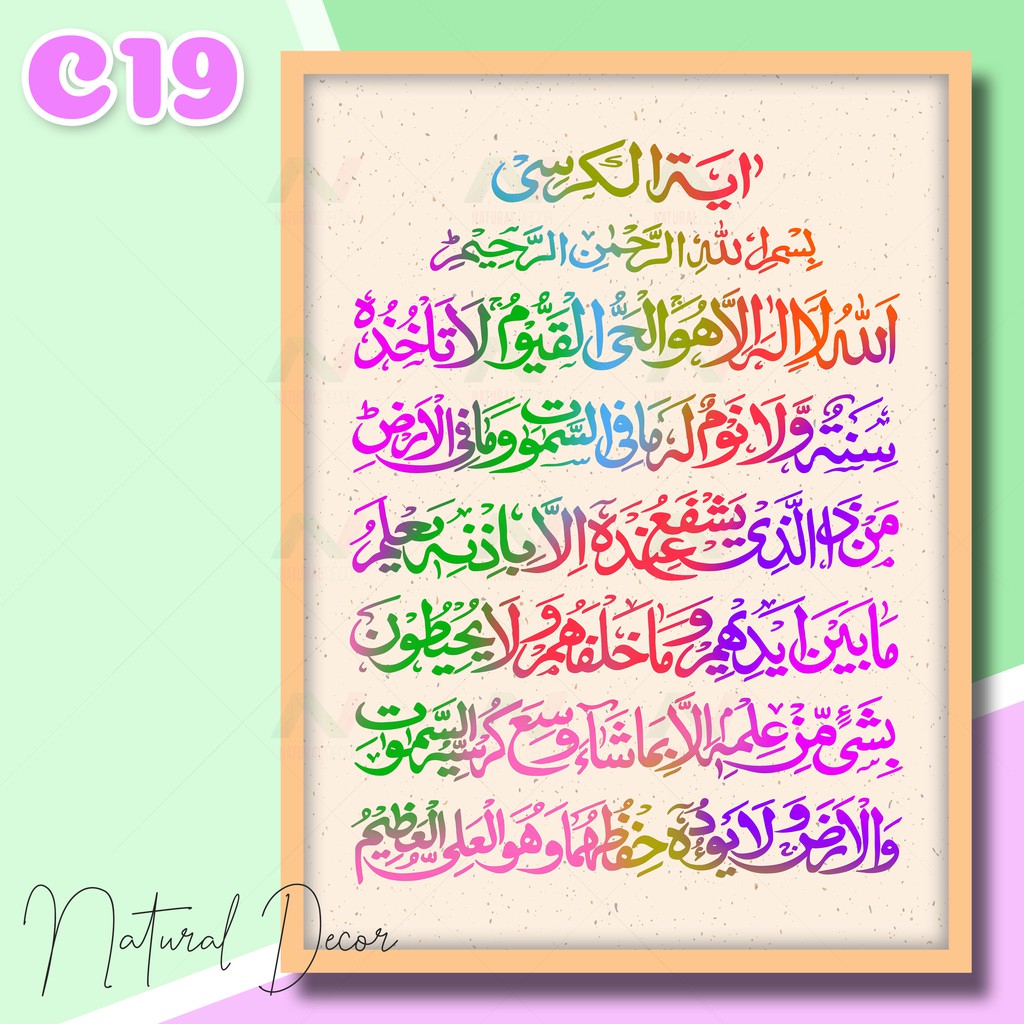 C19
اية الكرسى
بِسْمِ اللّٰهِ الرَّحْمٰنِ الرَّحِيْمِ
اَللّٰهُ لَا اِلٰهَ اِلَّا هُوَ الْحَىُّ الْقَيُّوْمُ لَا تَأْخُذُهٗ
سِنَةٌ وَّلَا نَوْمٌ لَهٗ مَا فِى السَّمٰوٰتِ وَمَا فِى الْاَرْضِ
مَنْ ذَا الَّذِىْ يَشْفَعُ عِنْدَهٗٓ اِلَّا بِاِذْنِهٖ يَعْلَمُ
مَا بَيْنَ اَيْدِيْهِمْ وَمَا خَلْفَهُمْ وَلَا يُحِيْطُوْنَ
بِشَىْءٍ مِّنْ عِلْمِهٖٓ اِلَّا بِمَا شَآءَ وَسِعَ كُرْسِيُّهُ السَّمٰوٰتِ
وَالْاَرْضَ وَلَا يَـُٔوْدُهٗ حِفْظُهُمَا وَهُوَ الْعَلِىُّ الْعَظِيْمُ
Natural Decor